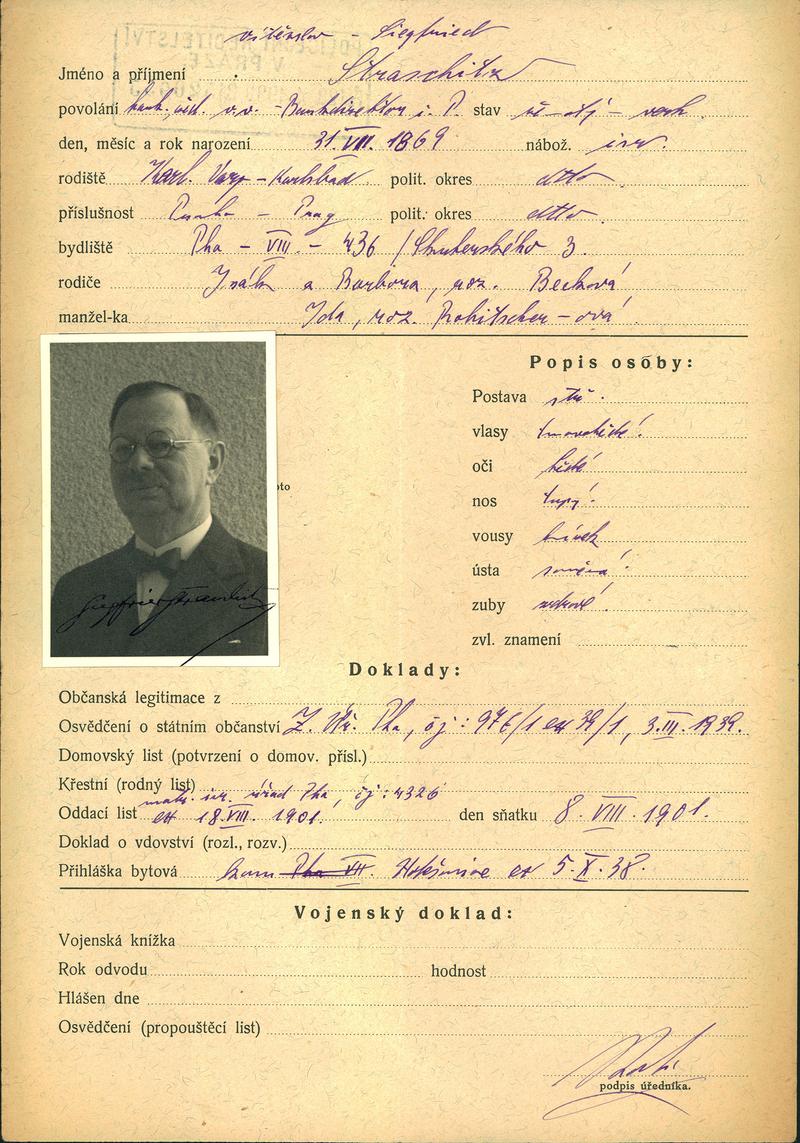 Vítězslav - Siegfried
Jméno a příjmení Straschitz
povolání bank. úřed. v.v. - Bankdirektor i. P. stav
den, měsíc a rok narození 31. VIII. 1869 nábož. isr.
rodiště Karl. Vary - Karlsbad polit. okres dtto
příslušnost Praha - Prag polit. okres dtto
bydliště Pha - VIII. - 436 / Stuherského 3.
rodiče Isák a Barbora, roz. Becková
manžel-ka Ida, roz. Robitscher-ová
Popis osoby:
Postava stř.
vlasy tmavohnědé
oči hnědé
nos tupý
vousy knírek
ústa souměrná
zuby zdravé
zvl. znamení
oto
Siegfried Straschitz
Doklady:
Občanská legitimace z
Osvědčení o státním občanství Z. úř. Pha, čj: 976/1 ex 39/1, 3. III. 1939.
Domovský list (potvrzení o domov. přísl.)
Křestní (rodný list)
matr. isr. úřad Pha, čj: 4326
Oddací list ex 18. VIII. 1901. den sňatku 8. VIII. 1901.
Doklad o vdovství (rozl., rozv.)
Přihláška bytová kom Pha VII. Holešovice ex 5. X. 38.
Vojenský doklad:
Vojenská knížka
Rok odvodu hodnost
Hlášen dne
Osvědčení (propouštěcí list)
podpis úředníka.